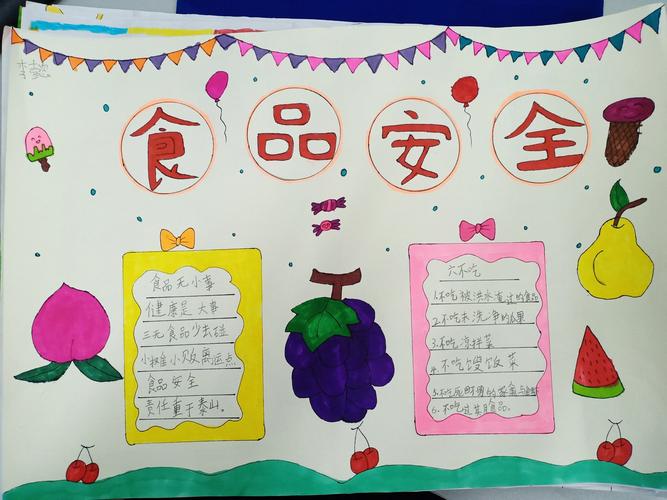 食品安全
食品无小事
健康是 大事
三无食品少去碰
小摊小贩离远点
食品安全
责任重于泰山。
六不吃
1.不吃被洪水淹过的食品
2.不吃未洗净的瓜果
3.不吃凉拌菜
4.不吃馊饭菜
5.不吃死因不明的家禽与
6.不吃过期食品。